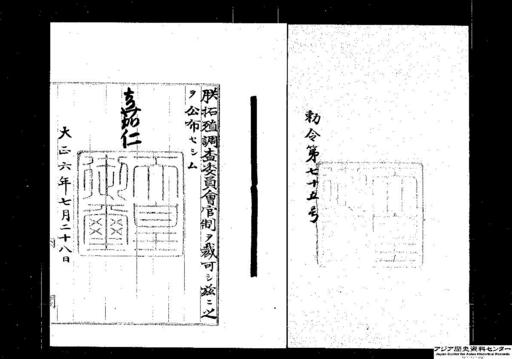 勅令第七十五号
朕拓殖調査委員會官制ヲ裁可シ茲ニ之
ヲ公布セシム
嘉仁
天皇
御璽
大正六年七月二十八日
アジア歴史資料センター
Japan Center for Asian Historical Records